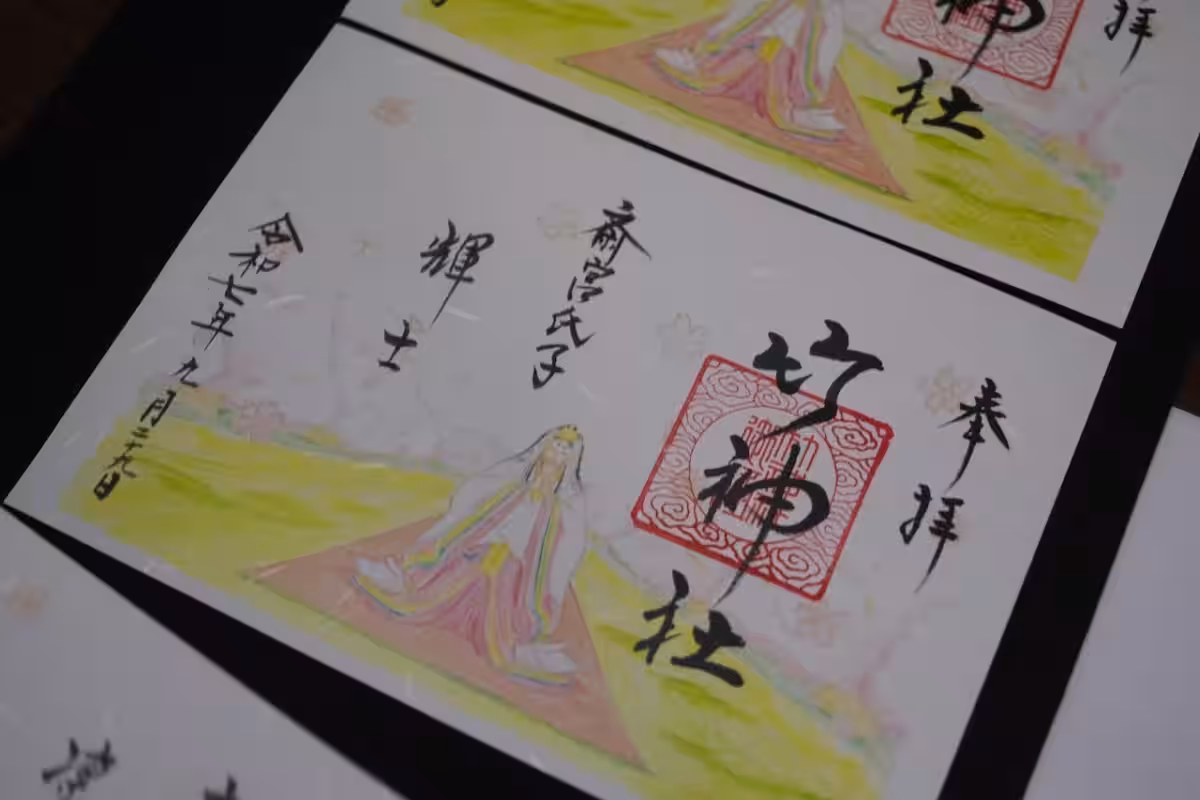 拝
神社
奉拝
竹神社
斎宮氏子
輝士
令和七年九月二十九日